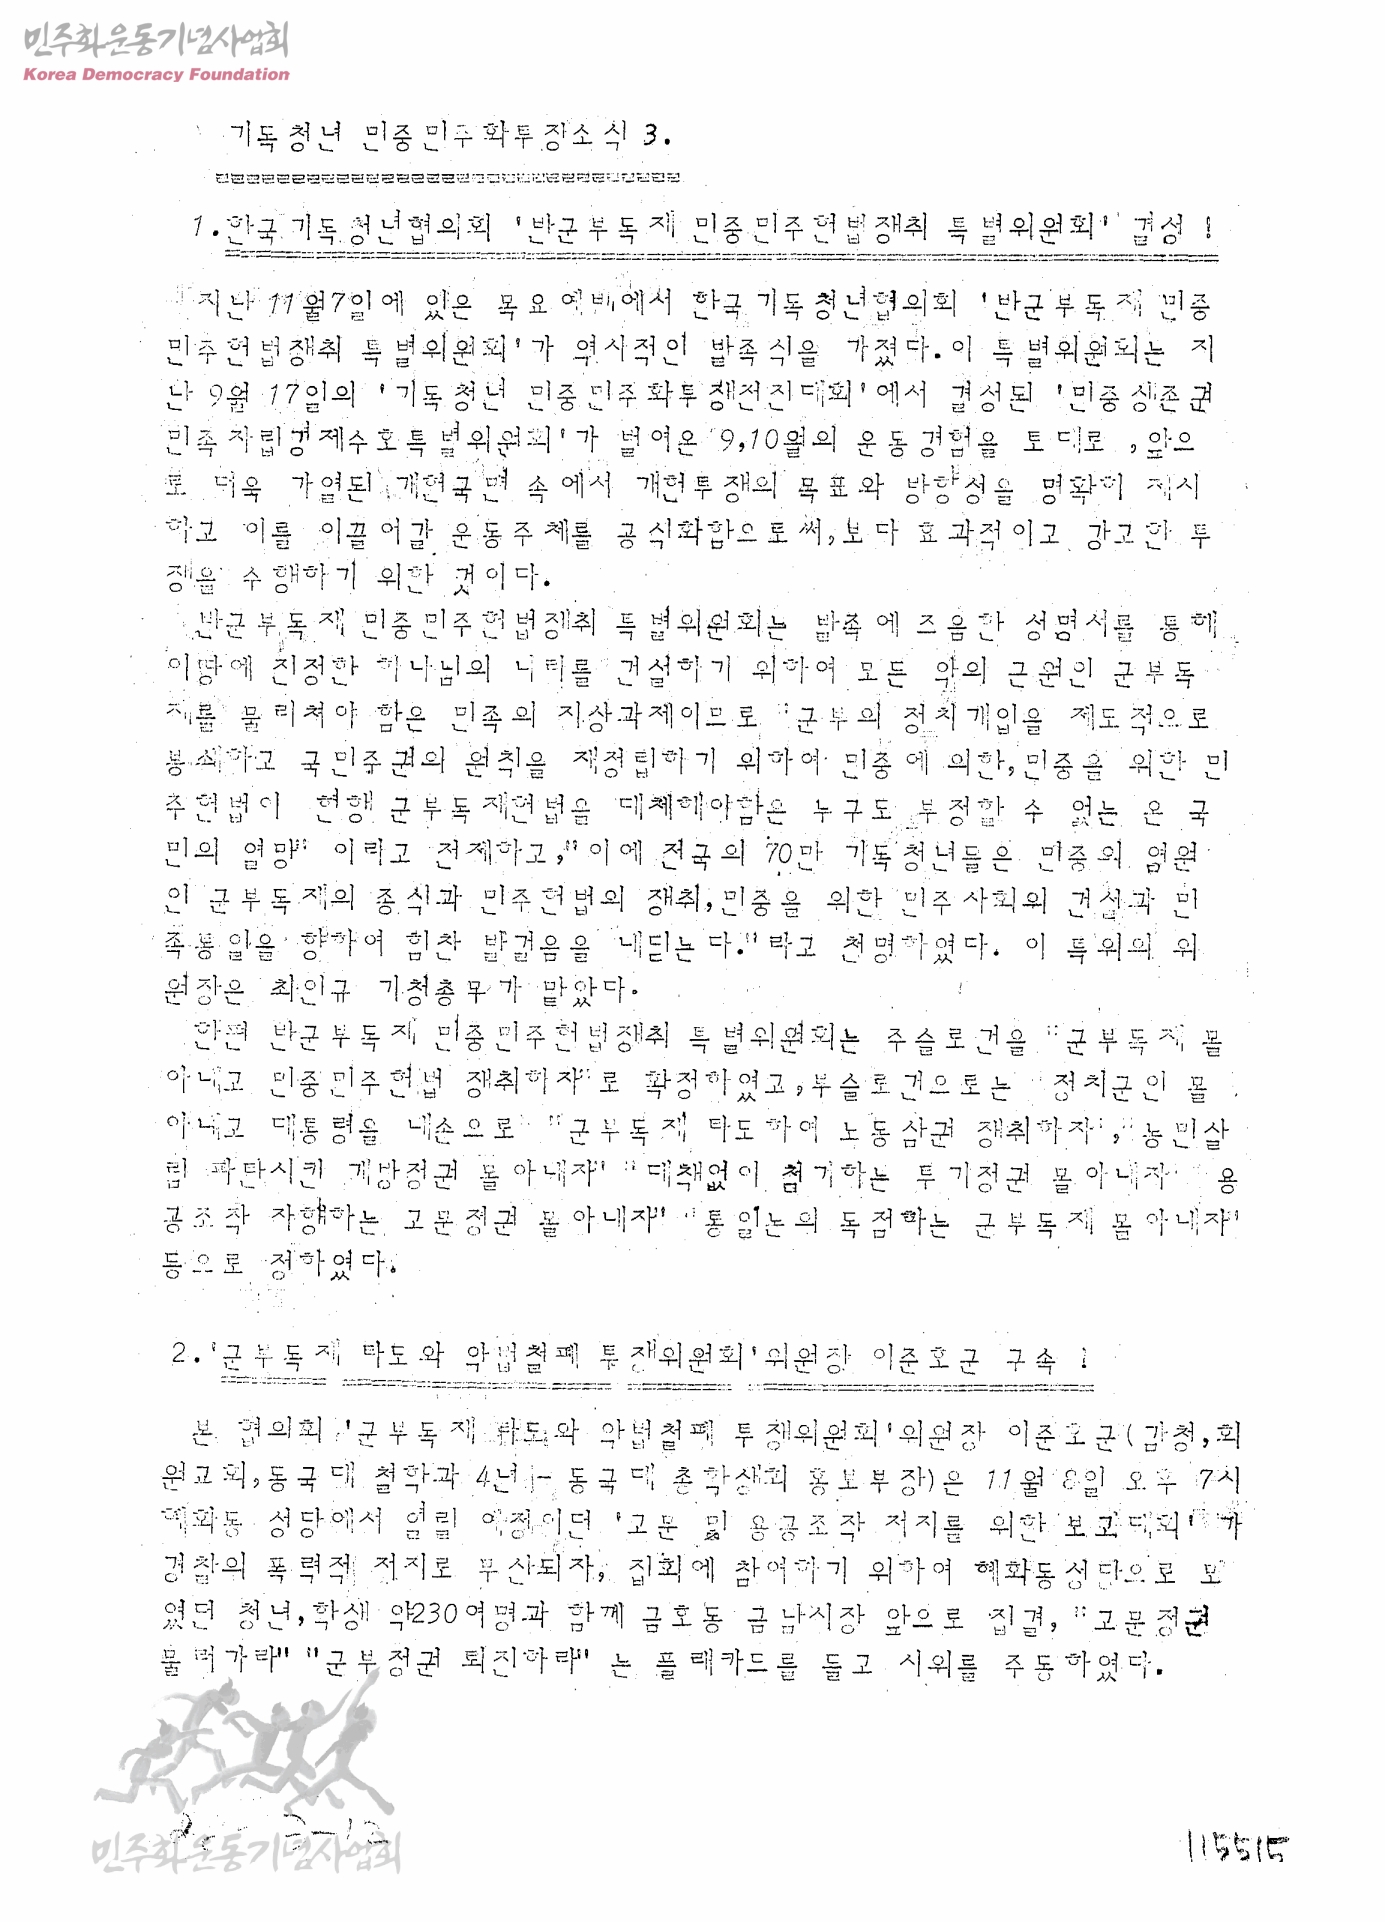 민주화운동기념사업회
Korea Democracy Foundation
기독청년 민중민주화투쟁소식 3.
1.한국기독청년협의회 '반군부독재 민중민주헌법쟁취 특별위원회' 결성 !
지난 11월7일에 있은 목요예배에서 한국기독청년협의회 '반군부독재 민중
민주헌법쟁취 특별위원회'가 역사적인 발족식을 가졌다.이 특별위원회는 지
난 9월 17일의 '기독청년 민중민주화투쟁전진대회'에서 결성된 '민중생존권
민족자립경제수호특별위원회'가 벌여온 9,10월의 운동경험을 토대로 ,앞으
로 더욱 가열된 개헌국면 속에서 개헌투쟁의 목표와 방향성을 명확히 제시
하고 이를 이끌어갈 운동주체를 공식화함으로써,보다 효과적이고 강고한 투
쟁을 수행하기 위한 것이다.
반군부독재 민중민주헌법쟁취 특별위원회는 발족에 즈음한 성명서를 통해
이땅에 진정한 하나님의 나라를 건설하기 위하여 모든 악의 근원인 군부독
재를 물리쳐야 함은 민족의 지상과제이므로 "군부의 정치개입을 제도적으로
봉쇄하고 국민주권의 원칙을 재정립하기 위하여 민중에 의한,민중을 위한 민
주헌법이 현행 군부독재헌법을 대체해야함은 누구도 부정할 수 없는 온 국
민의 열망" 이라고 전제하고,"이에 전국의 70만 기독청년들은 민중의 염원
인 군부독재의 종식과 민주헌법의 쟁취,민중을 위한 민주사회의 건설과 민
족통일을 향하여 힘찬 발걸음을 내딛는다."라고 천명하였다. 이 특위의 위
원장은 최인규 기청총무가 맡았다.
한편 반군부독재 민중민주헌법쟁취 특별위원회는 주슬로건을 "군부독재 몰
아내고 민중민주헌법 쟁취하자"로 확정하였고,부슬로건으로는 정치군인 몰
아내고 대통령을 내손으로" "군부독재 타도하여 노동삼권 쟁취하자","농민살
림 파탄시킨 개방정권 몰아내자" "대책없이 첨거하는 투기정권 몰아내자" 용
공조작 자행하는 고문정권 몰아내자" "통일논의 독점하는 군부독재 몰아내자"
등으로 정하였다.
2.'군부독재 타도와 악법철폐 투쟁위원회'위원장 이준호군 구속 !
본 협의회 '군부독재 타도와 악법철폐 투쟁위원회'위원장 이준호군(감청,회
원교회,동국대 철학과 4년 - 동국대 총학생회 홍보부장)은 11월 8일 오후 7시
혜화동 성당에서 열릴 예정이던 '고문 및 용공조작 저지를 위한 보고대회'가
경찰의 폭력적 저지로 무산되자, 집회에 참여하기 위하여 혜화동성당으로 모
였던 청년,학생 약230여명과 함께 금호동 금남시장 앞으로 집결, "고문정권
물러가라" "군부정권 퇴진하라" 는 플래카드를 들고 시위를 주동하였다.
민주화운동기념사업회
115515